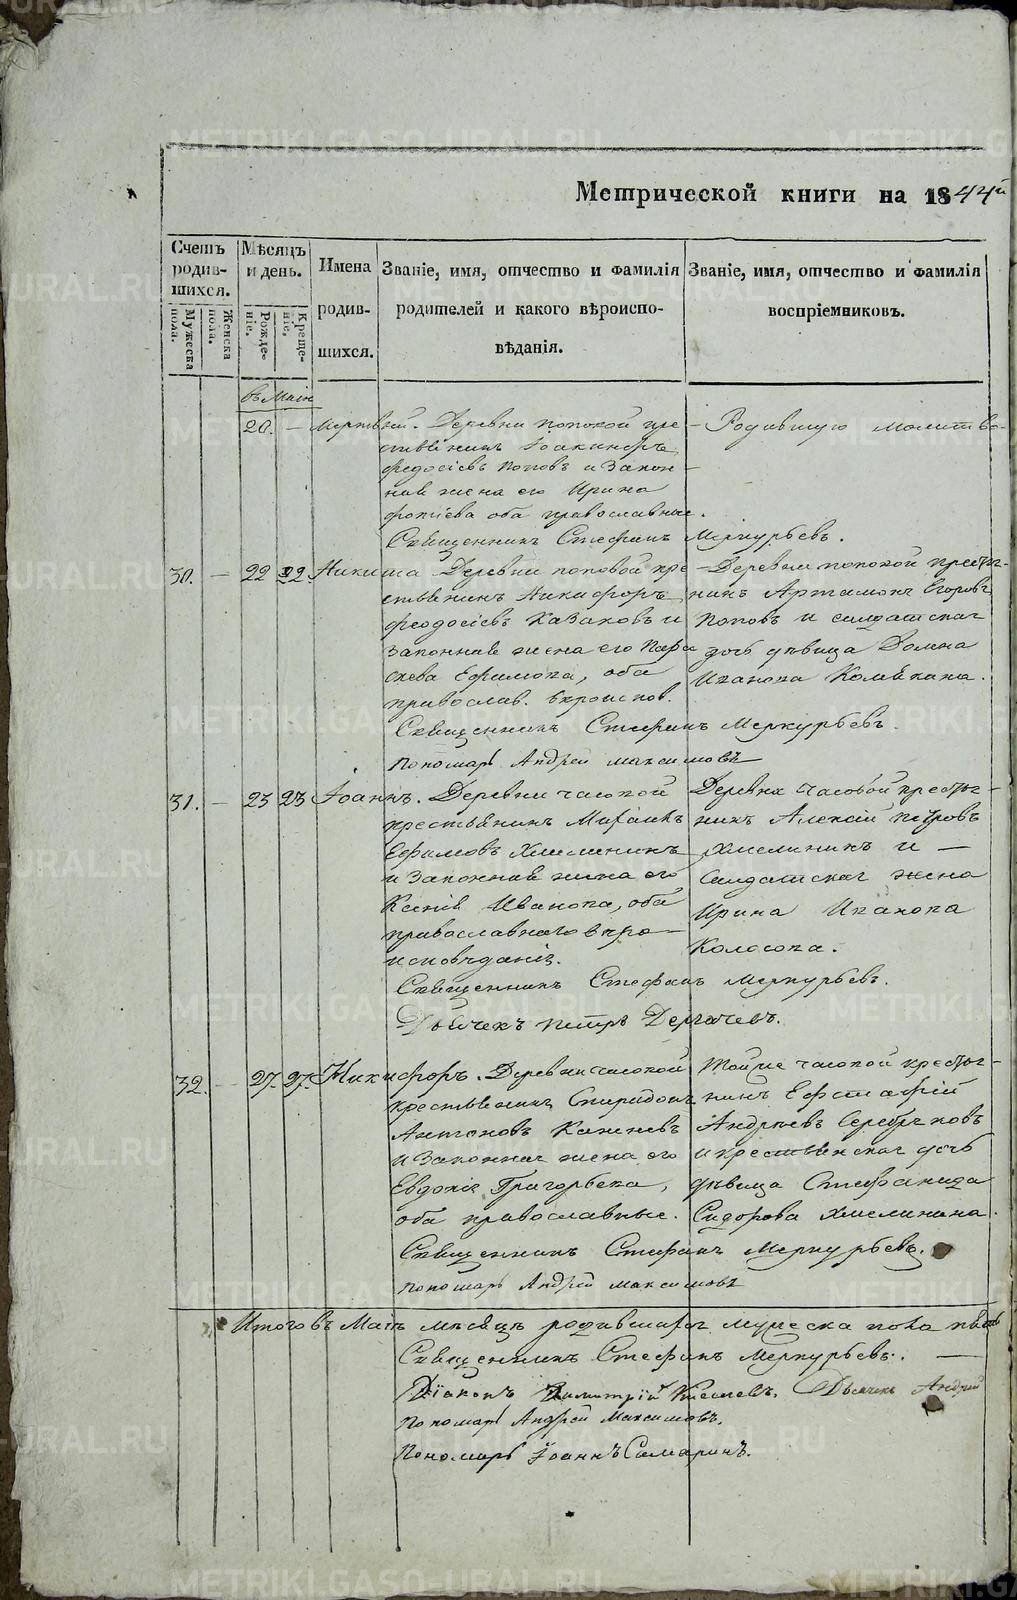 Метрической книги на 1844й
Счетъ родившихся.
Мужеска пола.
Женска пола.
Мѣсяцъ и день.
Рожденіе.
Крещеніе.
Имена родившихся.
Званіе, имя, отчество и фамилія родителей и какого вѣроисповѣданія.
Званіе, имя, отчество и фамилія воспріемниковъ.
въ Маіи
20. — Мертвый. Деревни Поповой кре-
стьянинъ Іоакимъ
Федосіевъ Поповъ и закон-
ная жена его Ирина
оба православные.
Родившую молитво-
Священникъ Стефанъ Меркурьевъ.
30. — 22 22. Никита Деревни Поповой кре
стьянинъ Никифоръ
Феодосіевъ Казаковъ и
законная жена его Пара
скева Ефимова, оба
православ. вѣроиспов.
Деревни Поповой крестья-
нинъ Артамонъ Егоровъ
Поповъ и солдатская
дочь дѣвица Домна
Иванова
Священникъ Стефанъ Меркурьевъ.
Пономарь Андрей Максимовъ
31. — 23 23 Іоаннъ. Деревни Часовой
крестьянинъ Михаилъ
Ефимовъ Хмелининъ
и законная жена его
Ксенія Иванова, оба
православнаго вѣро-
исповѣданія.
Деревни Часовой крестья-
нинъ Алексій Петровъ
Хмелининъ и —
солдатская жена
Ирина Иванова
Колосова.
Священникъ Стефанъ Меркурьевъ.
Дьячекъ Петръ Дергачевъ.
32. — 27. 27. Никифоръ. Деревни Часовой
крестьянинъ Спиридонъ
Антоновъ
и законная жена его
Евдокія Григорьева,
оба православные.
Тойже Часовой крестья-
нинъ Евстафій
Андреевъ Серебряковъ
и крестьянская дочь
дѣвица Стефанида
Сидорова Хмелинина.
Священникъ Стефанъ Меркурьевъ.
Пономарь Андрей Максимовъ
Итого въ Маіи мѣсяцѣ родившихся мужеска пола пять
Священникъ Стефанъ Меркурьевъ. —
Діаконъ Димитрій Киселевъ. Дьячекъ Андрей
Пономарь Андрей Максимовъ.
Пономарь Іоаннъ Самаринъ.
METRIKI.GASO-URAL.RU